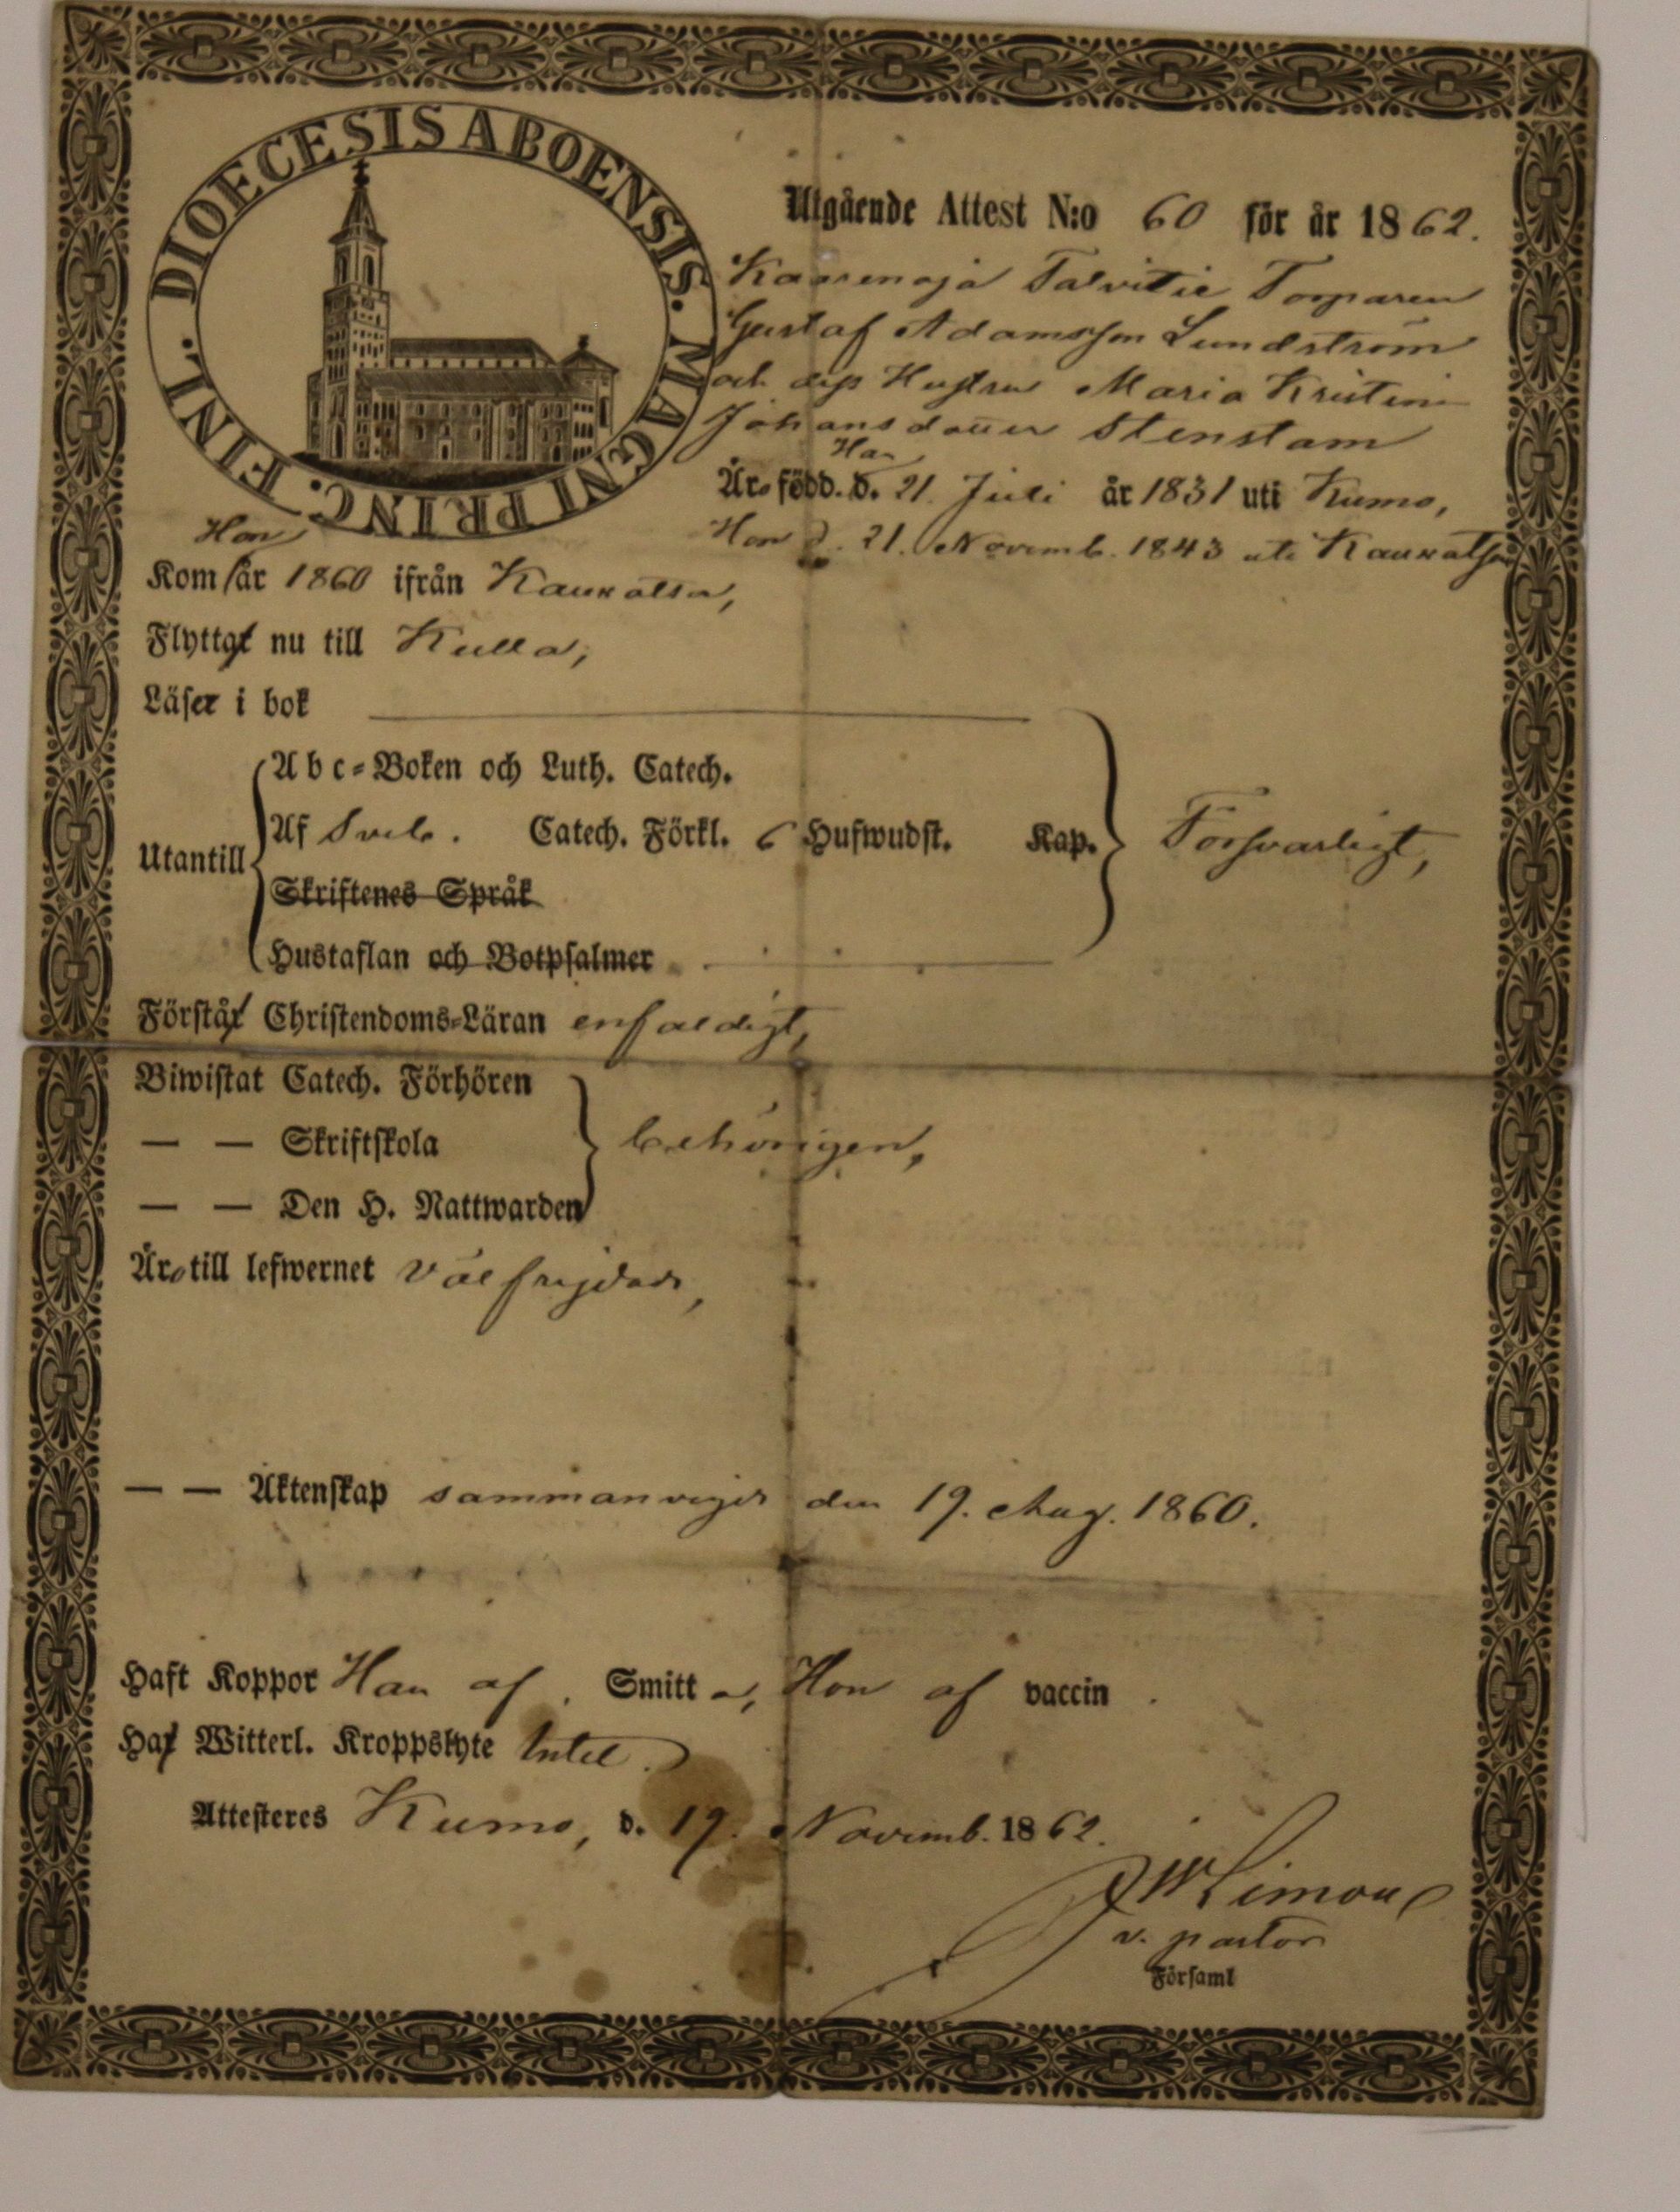 DIOECESIS ABOENSIS. MAGNI PRINC. FINL.
Utgående Attest N:o 60 för år 1862.
Talvitie Torparen
Gustaf Adamsson Lundström
och dess Hustru Maria Kristina
Johansdotter Stenstam
Han
Äro född. d. 21. Juli år 1831 uti Kumo,
Hon d. 21. Novemb. 1843 uti Kauvatsa
Hon
Kom år 1860 ifrån Kauvatsa,
Flytta nu till Kulla,
Läser i bok
Abc-Boken och Luth. Catech.
Utantill Af Sveb. Catech. Förkl. 6 Hufwudst. Kap. Försvarligt,
Skriftenes Språk
Hustaflan och Botpsalmer
Förstå Christendoms-Läran enfaldigt,
Biwistat Catech. Förhören
— — Skriftskola behörigen,
— — Den H. Nattwarden
Äro till lefwernet välfrejdade,
— — Äktenskap sammanvigde den 19. Aug. 1860.
Haft Koppor Han af Smitta, Hon af vaccin.
Ha Witterl. Kroppslyte Intet.
Attesteres Kumo, d. 19. Novemb. 1862.
v. pastor
Församl